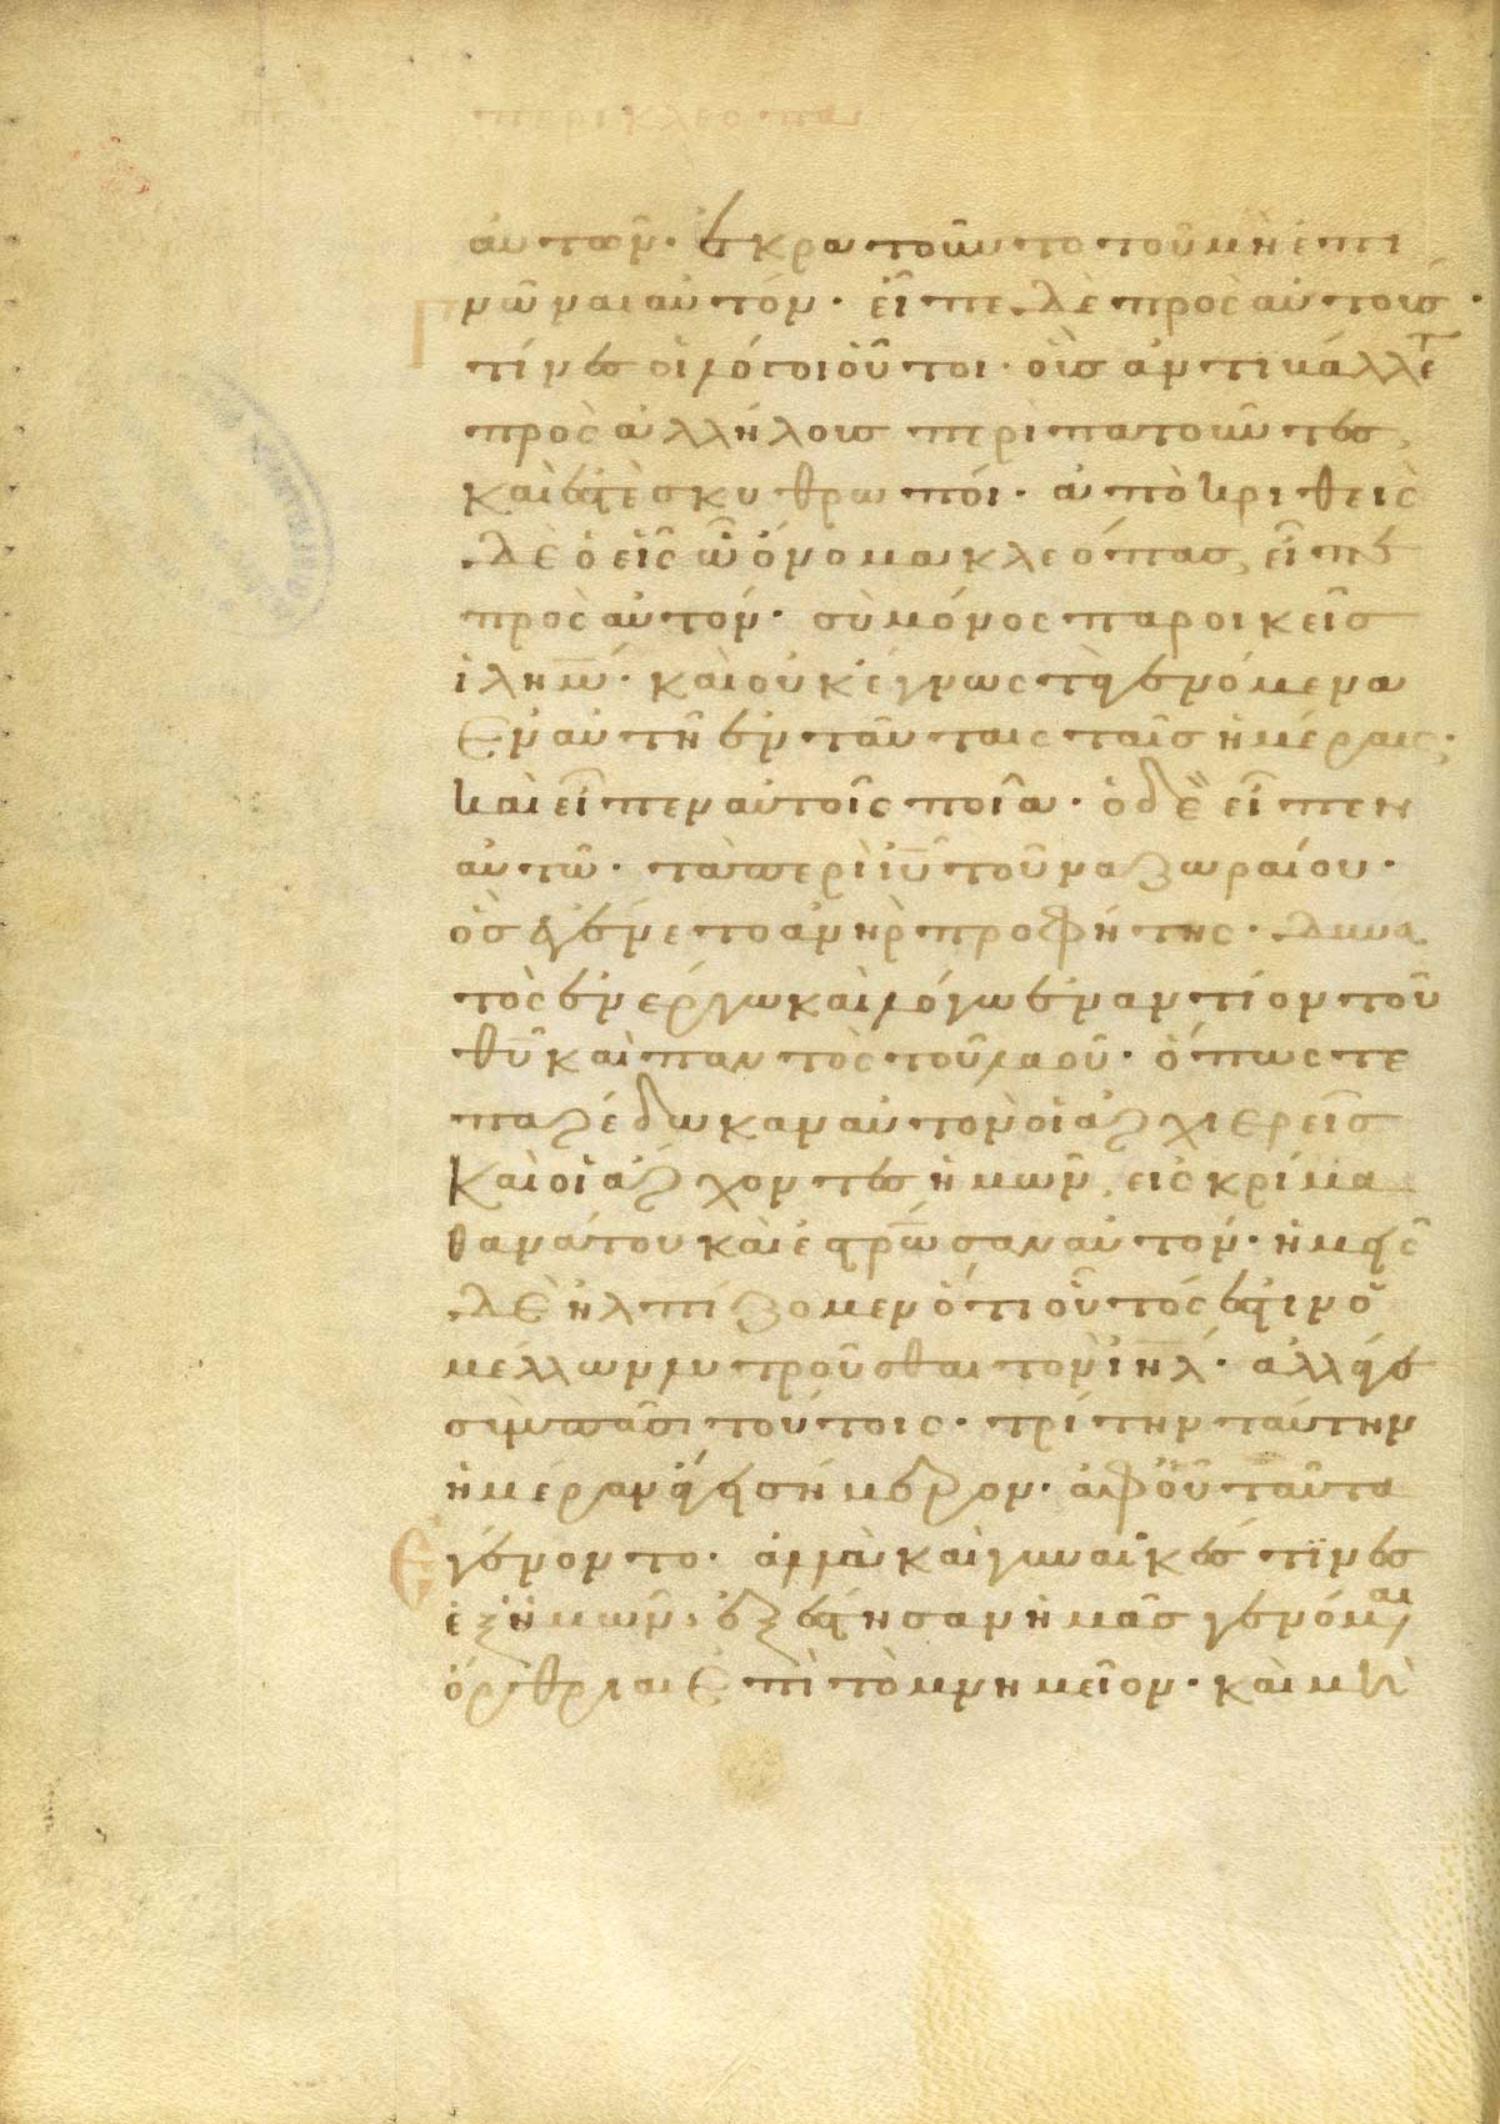 περι κλεοπα
αὐτῶν· ἐκρατοῦντο τοῦ μὴ ἐπι
γνῶναι αὐτόν· εἶπε δὲ πρὸς αὐτούς·
τίνες οἱ λόγοι οὗτοι· οὓς ἀντιβάλλετ
πρὸς ἀλλήλους περιπατοῦντες,
καὶ ἐστὲ σκυθρωποί· ἀποκριθεὶς
δὲ ὁ εἷς ᾧ ὄνομα κλεόπας, εἶπε
πρὸς αὐτόν· σὺ μόνος παροικεῖς
ἰλημ· καὶ οὐκ ἔγνως τὰ γενόμενα
ἐν αὐτῇ ἐν ταύταις ταῖς ἡμέραις;
καὶ εἶπεν αὐτοῖς ποῖα· ὁ δὲ εἶπεν
αὐτῷ· τὰ περὶ ιυ τοῦ ναζωραίου·
ὃς ἐγένετο ἀνὴρ προφήτης· δυνα
τὸς ἐν ἔργω καὶ λόγω ἐναντίον τοῦ
θυ καὶ παντὸς τοῦ λαοῦ· ὅπως τε
παρέδωκαν αὐτὸν οἱ ἀρχιερεῖς
καὶ οἱ ἄρχοντες ἡμῶν, εἰς κρίμα
θανάτου καὶ ἐστρωσαν αὐτόν· ἡμεῖς
δὲ ἠλπίζομεν ὅτι οὗτός ἐστιν ὁ
μέλλων λυτροῦσθαι τὸν ιηλ· ἀλλά γε
σὺν πᾶσι τούτοις· τρίτην ταύτην
ἡμέραν ἄγει σήμερον· ἀφ οὗ ταῦτα
ἐγένοντο· ἀλλὰ καὶ γυναῖκές τινες
ἐξ ἡμῶν, ἐξέστησαν ἡμᾶς γενόμεναι
ὄρθριαι ἐπὶ τὸ μνημεῖον· καὶ μὴ